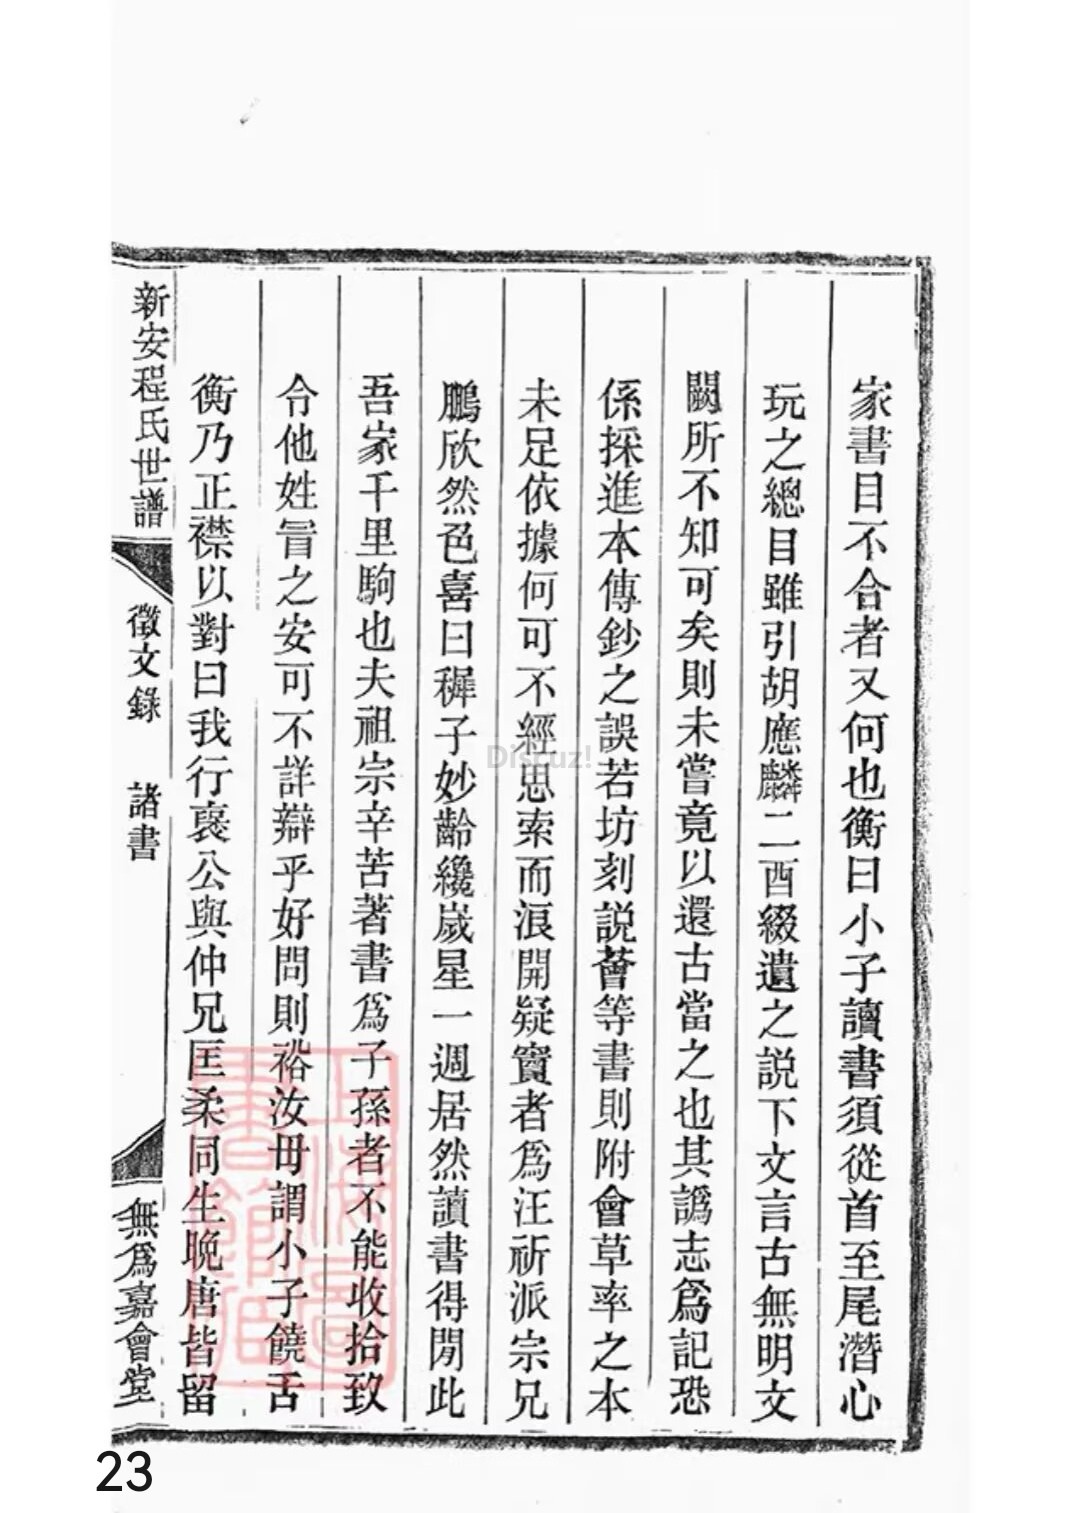 家書目不合者又何也衡曰小子讀書須從首至尾潛心
玩之總目雖引胡應麟二酉綴遺之説下文言古無明文
闕所不知可矣則未嘗竟以還古當之也其譌志爲記恐
係採進本傳鈔之誤若坊刻説薈等書則附會草率之本
未足依據何可不經思索而浪開疑竇者爲汪祈派宗兄
鵬欣然色喜曰穉子妙齡纔歲星一週居然讀書得閒此
吾家千里駒也夫祖宗辛苦著書爲子孫者不能收拾致
令他姓冒之安可不詳辯乎好問則裕汝毋謂小子饒舌
衡乃正襟以對曰我行襃公與仲兄匡柔同生晚唐皆留
新安程氏世譜
徵文錄
諸書
無爲嘉會堂
上海圖書館藏
Discuz!
23